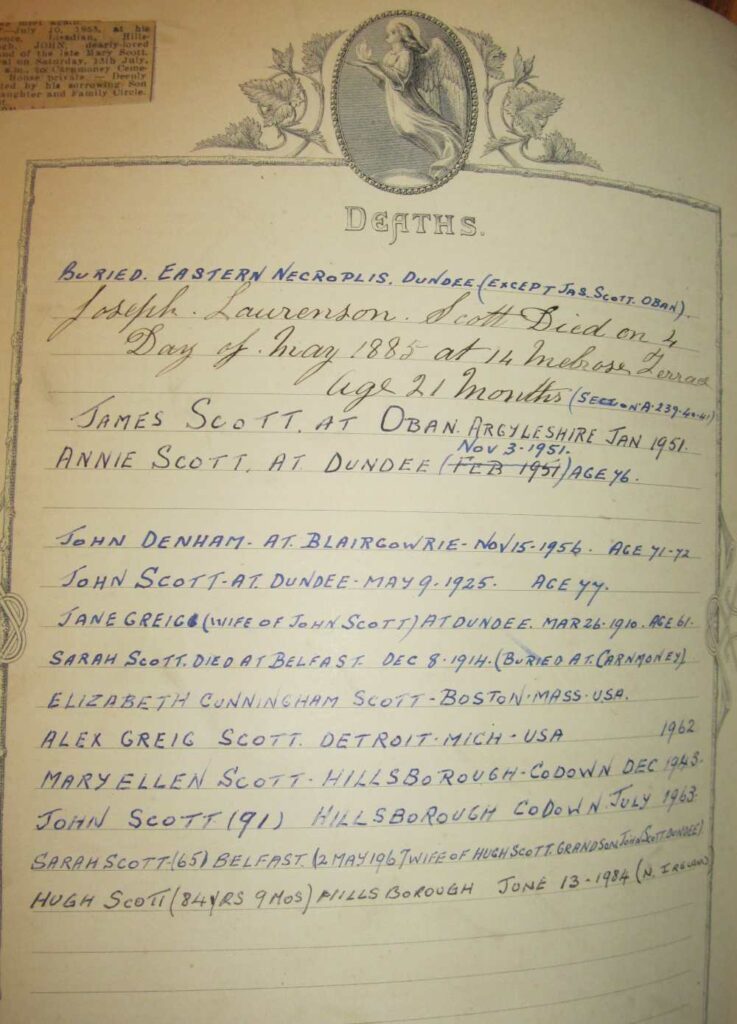 July 10, 1963, at his
Hills-
JOHN, dearly-loved
of the late Mary Scott.
on Saturday, 13th July,
to Carnmoney Ceme-
House private. — Deeply
by his sorrowing Son
and Family Circle.
DEATHS.
BURIED. EASTERN NECROPLIS. DUNDEE. (EXCEPT JAS. SCOTT. OBAN).
Joseph. Laurenson. Scott Died on 4
Day of May 1885 at 14 Melrose Terrace
Age 21 Months (SECTION A-239-40-41)
JAMES SCOTT. AT OBAN. ARGYLESHIRE JAN 1951.
NOV 3-1951.
ANNIE SCOTT. AT DUNDEE (FEB 1951) AGE 76.
JOHN DENHAM- AT. BLAIRGOWRIE- NOV 15-1956. AGE 71-72
JOHN SCOTT-AT. DUNDEE- MAY 9-1925. AGE 77.
JANE GREIG (WIFE OF JOHN SCOTT) AT DUNDEE. MAR 26-1910. AGE 61.
SARAH SCOTT. DIED AT BELFAST DEC 8-1914. (BURIED AT. CARNMONEY)
ELIZABETH CUNNINGHAM SCOTT-BOSTON-MASS-USA.
ALEX GREIG SCOTT. DETROIT-MICH-USA 1962
MARY ELLEN SCOTT- HILLSBOROUGH-CO DOWN DEC 1943.
JOHN SCOTT (91) HILLSBOROUGH CO DOWN. JULY 1963.
SARAH SCOTT (65) BELFAST. (2 MAY 1967 WIFE OF HUGH SCOTT. GRANDSON JOHN SCOTT. DUNDEE)
HUGH SCOTT (84 YRS 9 MOS) HILLSBOROUGH JUNE 13-1984 (N. IRELAND)